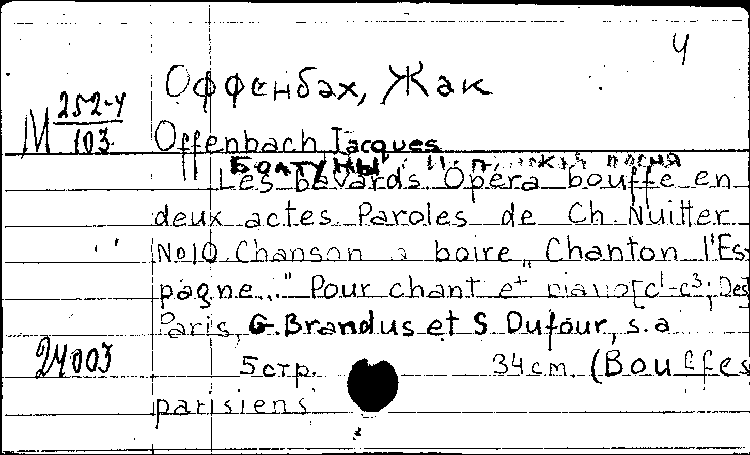 4
Оффенбах, Жак
М 252-4/103
Offenbach Jacques
Болтуны
Les bavards Opéra bouffe en
deux actes Paroles de Ch. Nuitter
No10 Chanson a boire „Chanton l'Es-
pagne..." Pour chant et piano [c¹-c³; Des]
Paris, G. Brandus et S. Dufour, s.a
24003
5 стр. 34 cm. (Bouffes
parisiens